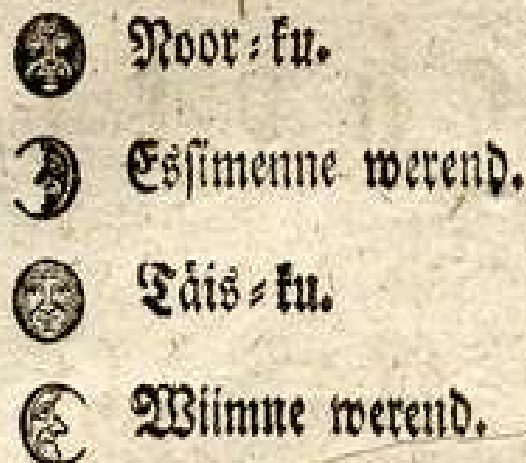 Noor-ku.
Essimenne werend.
Täis-ku.
Wiimne werend.